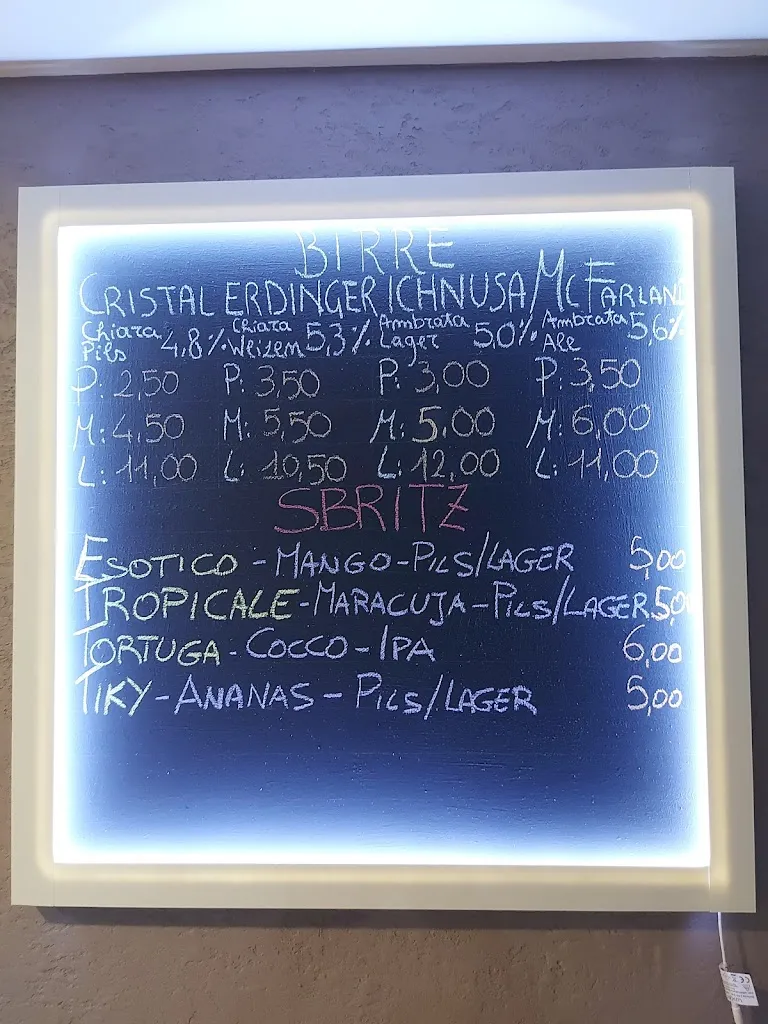 BIRRE
CRISTAL ERDINGER ICHNUSA/MCFARLAND
Chiara Pils 4,8% Chiara Weizem 5,3% Ambrata Lager 5,0% Ambrata Ale 5,6%
P: 2,50 P: 3,50 P: 3,00 P: 3,50
M: 4,50 M: 5,50 M: 5,00 M: 6,00
L: 11,00 L: 10,50 L: 12,00 L: 11,00
SBRITZ
ESOTICO - MANGO - PILS/LAGER 5,00
TROPICALE - MARACUJA - PILS/LAGER 5,00
TORTUGA - COCCO - IPA 6,00
TIKY - ANANAS - PILS/LAGER 5,00